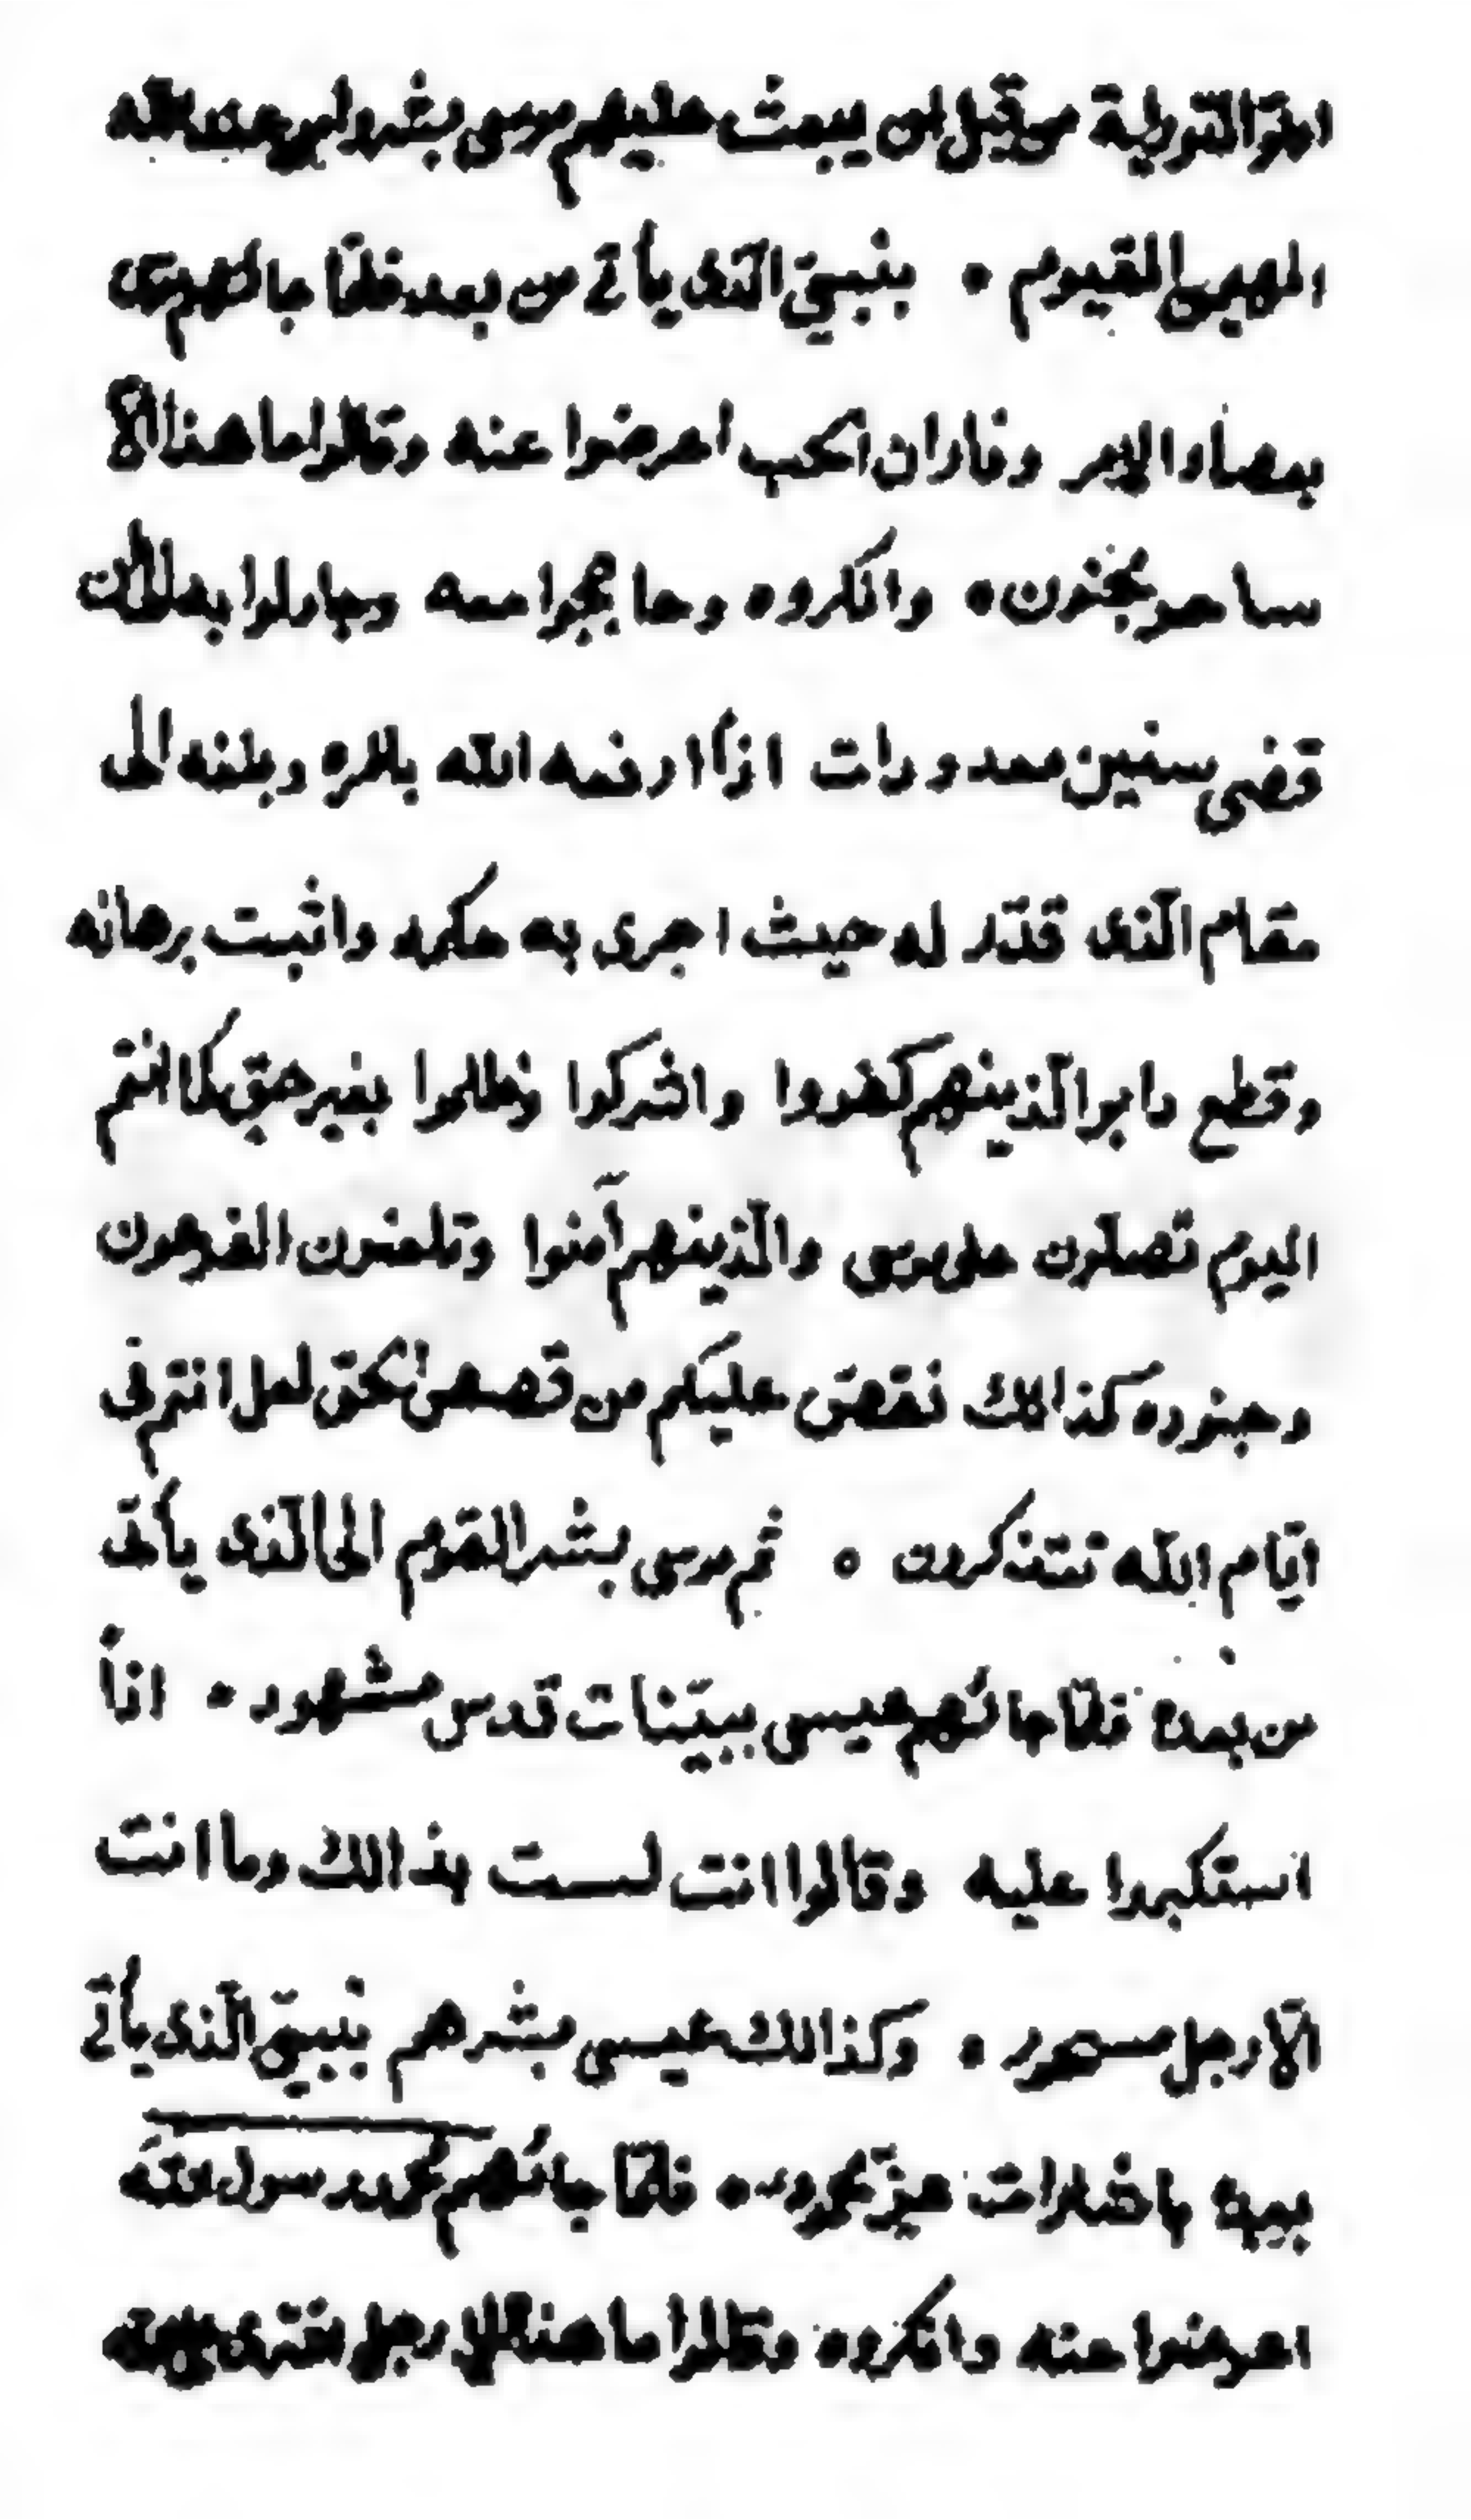 اهل التورية من قبل ان يبعث عليهم موسى بشروا من عند الله
المهيمن القيوم ٥ بنبيّ الّذى يأتى من بعد فلمّا جائهم موسى
بعصاء الامر وفاران الحب اعرضوا عنه وقالوا ما هذا الّا
ساحر مجنون ٥ وانكروه وحاججوا معه وجادلوا به الى ان
قضى سنين معدودات اذاً ارفعه الله بامره وبلغه الى
مقام الّذى قدّر له حيث اجرى به حكمه واثبت برهانه
وقطع دابر الّذينهم كفروا واشركوا وظلموا بغير حقّ كما انتم
اليوم تصلّون على موسى والّذينهم آمنوا وتلعنون الفرعون
وجنوده كذالك نقصّ عليكم من قصص الحقّ لعل انتم فى
ايّام الله تتذكرون ٥ ثم موسى بشر القوم الى الّذى يأتى
من بعده فلمّا جائهم عيسى ببيّنات قدس مشهود ٥ اذاً
استكبروا عليه وقالوا انت لست بذالك وما انت
الّا رجل مسحور ٥ وكذالك عيسى بشرهم بنبيّ الّذى يأتى
بعده باشارات عزّ محدود ٥ فلمّا جائهم محمد رسول الله
اعرضوا عنه وانكروه وقالوا ما هذا الا رجل افترى